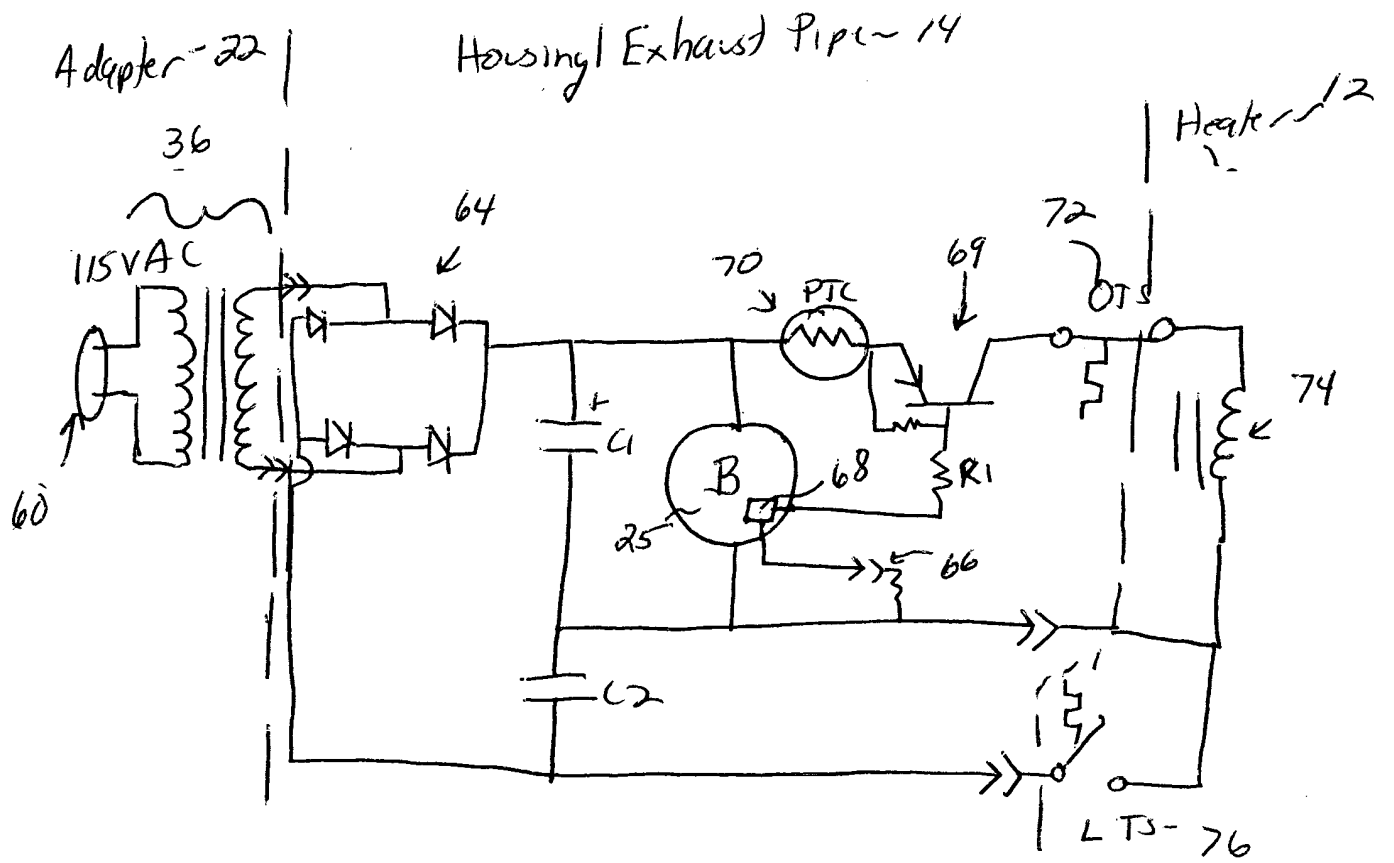 Adapter-22
Housing/ Exhaust Pipe-14
Heater-12
36
115VAC
64
70
PTC
69
72
OTS
74
+
C1
B
68
R1
25
66
60
C2
LTS-76